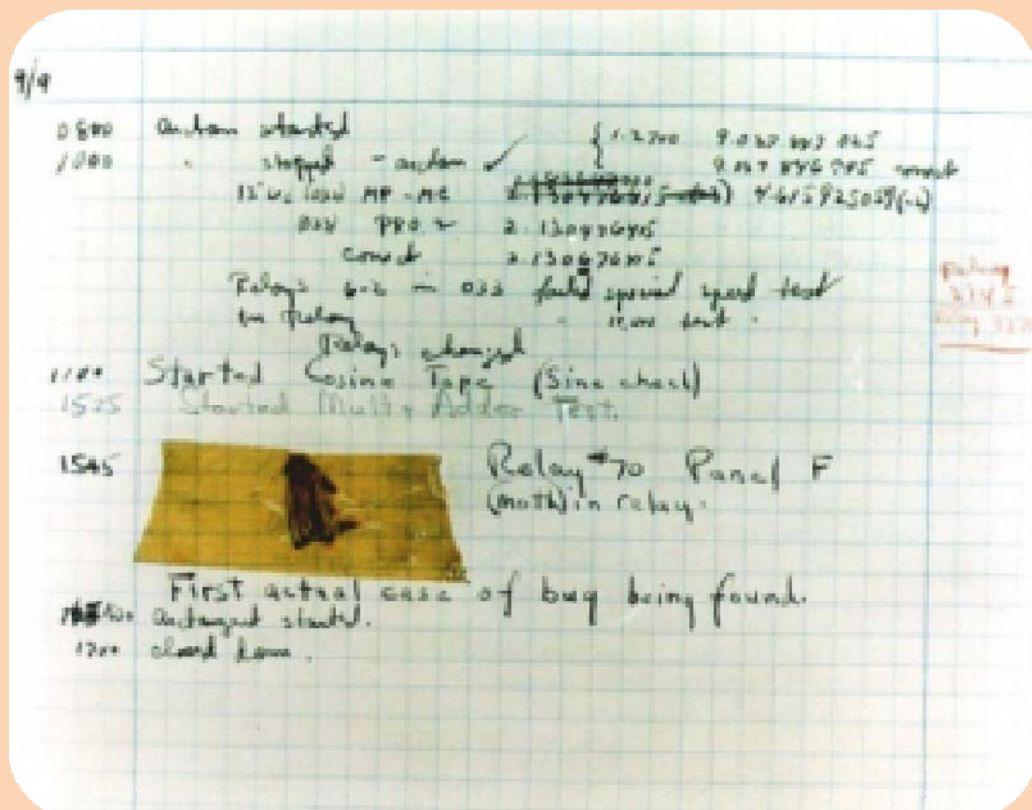 9/9
0800 antan started
1000 " stopped - antan ✓ { 1.2700 9.037 847 025
9.037 846 995 correct
13"uc (032) MP-MC 4.615925059(-2)
033 PRO 2 2.130476415
correct 2.130676415
Relays 6-2 in 033 failed special speed test
in Relay " test.
Relay
Relays changed
1100 Started Cosine Tape (Sine check)
1525 Started Multy Adder Test.
1545 Relay #70 Panel F
(moth) in relay.
First actual case of bug being found.
antangent started.
1700 closed down.